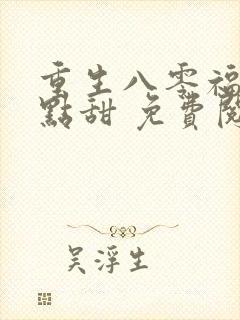 重生八零福
點甜 免費閱
吳浮生